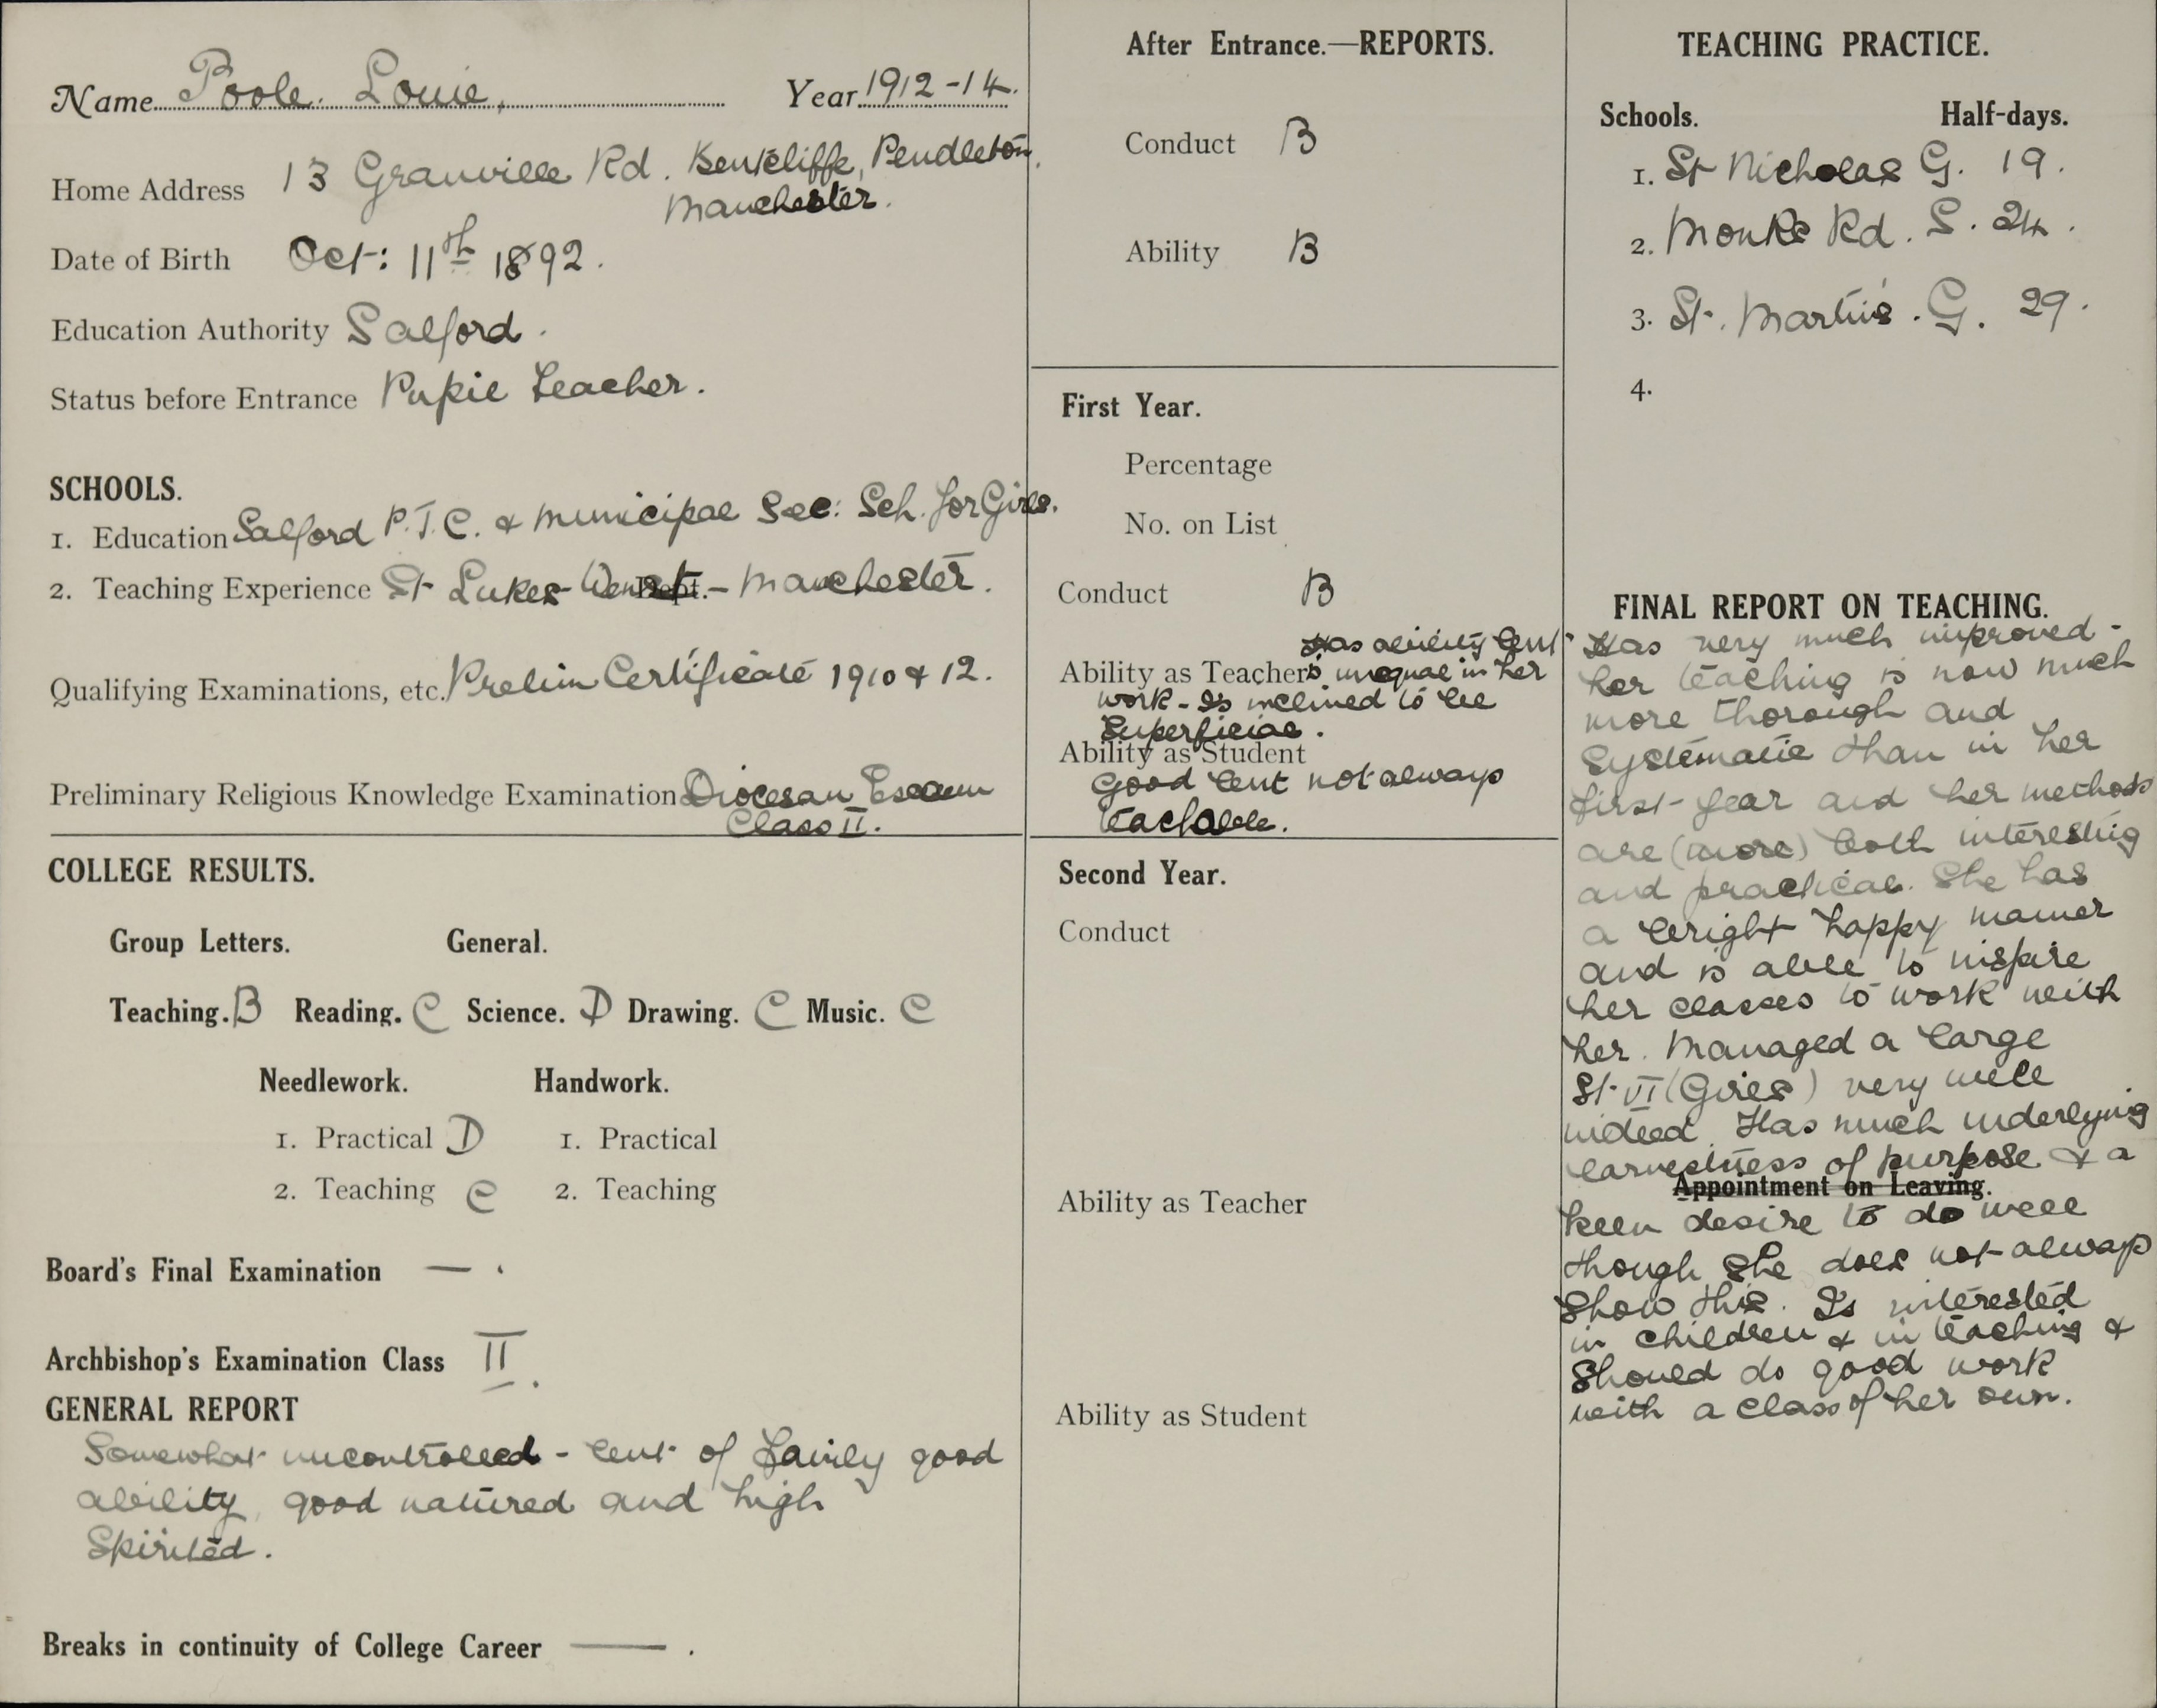 Name Poole. Louie, Year 1912-14.
Home Address 13 Granville Rd. Pendleton,
Manchester.
Date of Birth Oct: 11th 1892.
Education Authority Salford.
Status before Entrance Pupil Teacher.
SCHOOLS.
1. Education Salford P.T.C. & Municipal Sec: Sch. for Girls.
2. Teaching Experience St Lukes - Dept. - Manchester.
Qualifying Examinations, etc. Prelim Certificate 1910 & 12.
Preliminary Religious Knowledge Examination Diocesan Exam
Class II.
COLLEGE RESULTS.
Group Letters. General.
Teaching. B Reading. C Science. D Drawing. C Music. C
Needlework. Handwork.
1. Practical D 1. Practical
2. Teaching C 2. Teaching
Board's Final Examination — .
Archbishop's Examination Class II.
GENERAL REPORT
Somewhat uncontrolled - but of fairly good
ability, good natured and high
Spirited.
Breaks in continuity of College Career — .
After Entrance.—REPORTS.
Conduct B
Ability B
First Year.
Percentage
No. on List
Conduct B
Has ability but
Ability as Teacher is unequal in her
work - Is inclined to be
Superficial.
Ability as Student
Good but not always
teachable.
Second Year.
Conduct
Ability as Teacher
Ability as Student
TEACHING PRACTICE.
Schools. Half-days.
1. St Nicholas G. 19.
2. Monks Rd. S. 24.
3. St. Martin's. G. 29.
4.
FINAL REPORT ON TEACHING.
Has very much improved -
her teaching is now much
more thorough and
Systematic than in her
first year and her methods
are (more) both interesting
and practical. She has
a bright happy manner
and is able to inspire
her classes to work with
her. Managed a large
St. VI (Girls) very well
indeed. Has much underlying
earnestness of purpose & a
Appointment on Leaving.
keen desire to do well
though She does not always
Show this. Is interested
in children & in teaching &
Should do good work
with a class of her own.